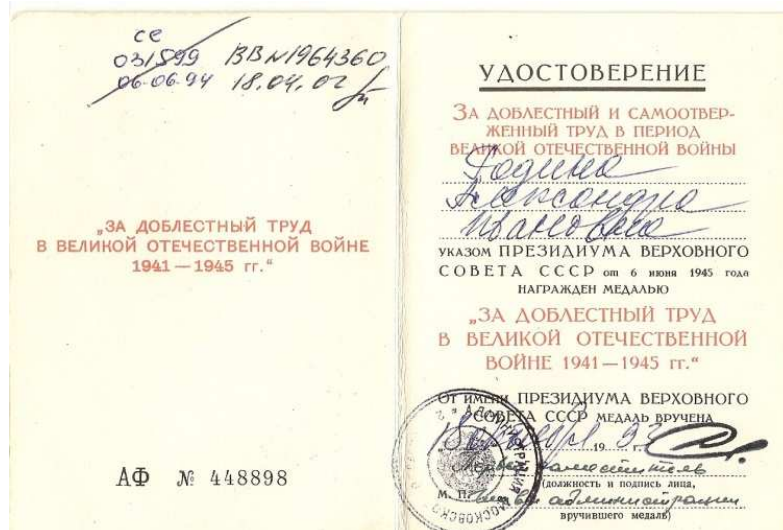 се
031599 ВВ №1964360
06-06-94 18.04.02
„ЗА ДОБЛЕСТНЫЙ ТРУД
В ВЕЛИКОЙ ОТЕЧЕСТВЕННОЙ ВОЙНЕ
1941—1945 гг.“
АФ № 448898
УДОСТОВЕРЕНИЕ
ЗА ДОБЛЕСТНЫЙ И САМООТВЕР-
ЖЕННЫЙ ТРУД В ПЕРИОД
ВЕЛИКОЙ ОТЕЧЕСТВЕННОЙ ВОЙНЫ
Родина
Александра
Ивановна
УКАЗОМ ПРЕЗИДИУМА ВЕРХОВНОГО
СОВЕТА СССР от 6 июня 1945 года
НАГРАЖДЕН МЕДАЛЬЮ
„ЗА ДОБЛЕСТНЫЙ ТРУД
В ВЕЛИКОЙ ОТЕЧЕСТВЕННОЙ
ВОЙНЕ 1941—1945 гг.“
ОТ ИМЕНИ ПРЕЗИДИУМА ВЕРХОВНОГО
СОВЕТА СССР МЕДАЛЬ ВРУЧЕНА
1993
Первый заместитель
М. П. (должность и подпись лица,
главы администрации
вручившего медаль)